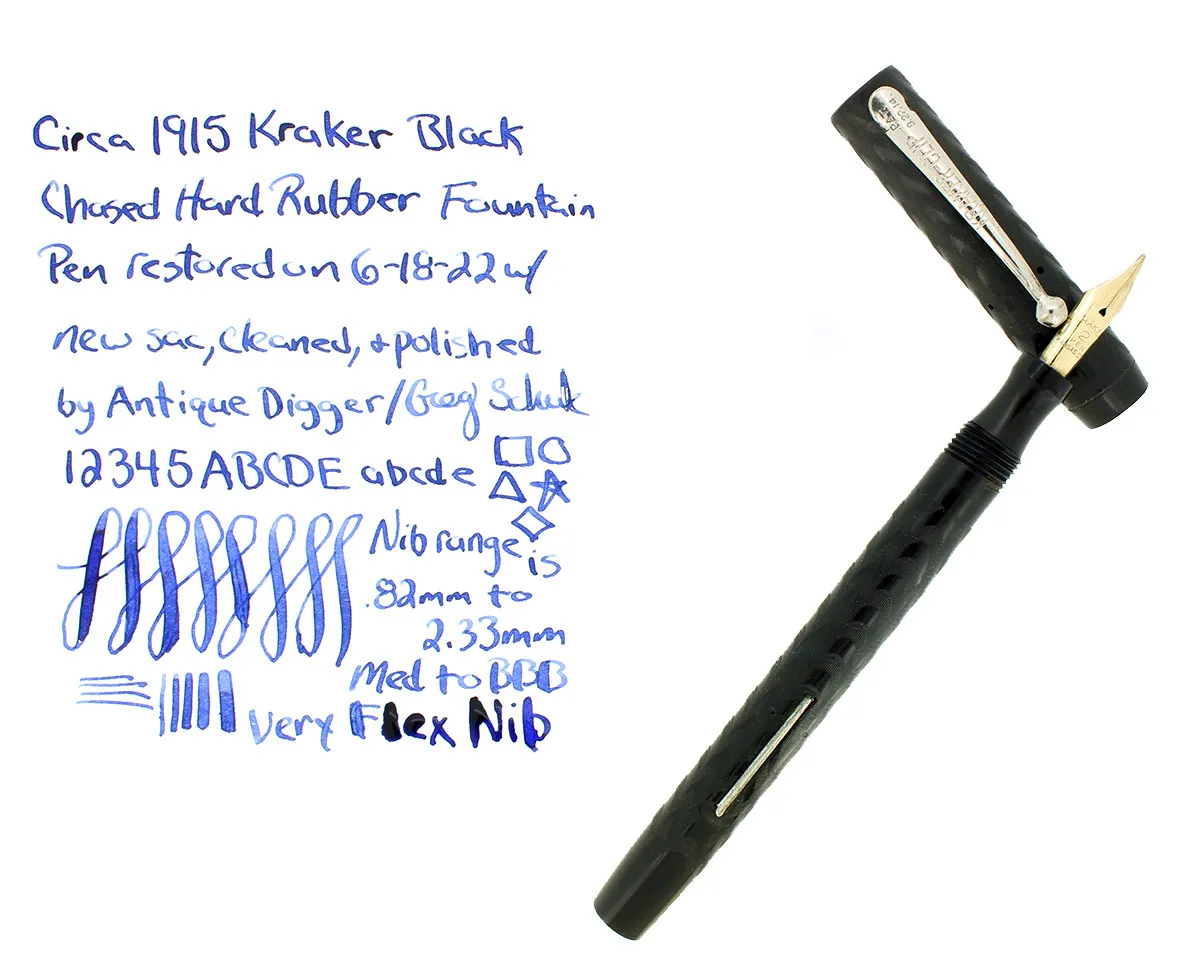 Circa 1915 Kraker Black
Chased Hard Rubber Fountain
Pen restored on 6-18-22 w/
new sac, cleaned, + polished
by Antique Digger/Greg
12345 ABCDE abcde
Nib range is
.82mm to
2.33mm
Med to BBB
Very Flex Nib
PAT.
9.22.14.
KRAKER-CLIP
2
PEN